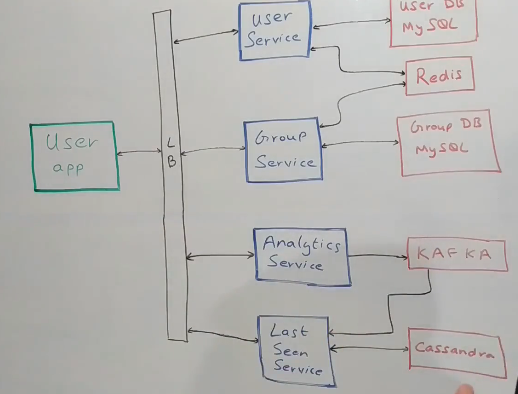 User DB
MySQL
User
Service
Redis
User
app
L
B
Group
Service
Group DB
MySQL
Analytics
Service
KAFKA
Last
Seen
Service
Cassandra